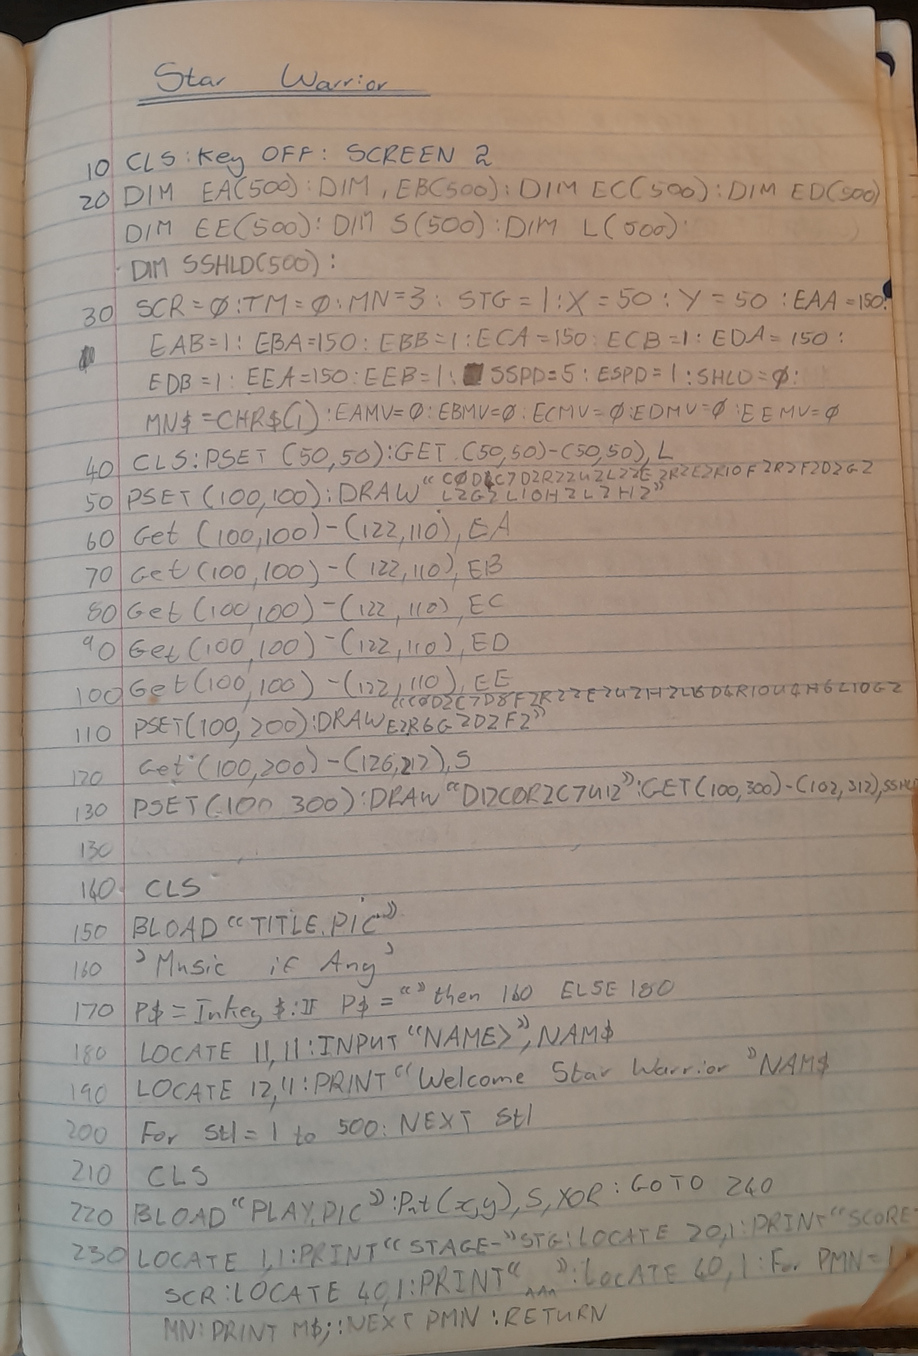 Star Warrior
10 CLS:Key OFF: SCREEN 2
20 DIM EA(500):DIM, EB(500):DIM EC(500):DIM ED(500)
DIM EE(500):DIM S(500):DIM L(500)
DIM SSHLD(500):
30 SCR=0:TM=0:MN=3: STG=1:X=50:Y=50:EAA=150:
EAB=1: EBA=150: EBB=1:ECA=150: ECB=1: EDA=150:
EDB=1: EEA=150: EEB=1: SSPD=5: ESPD=1:SHLD=0:
MN$=CHR$(1):EAMV=0:EBMV=0:ECMV=0:EDMV=0:EEMV=0
40 CLS:PSET (50,50):GET (50,50)-(50,50),L
50 PSET (100,100):DRAW "C0D1C7D2R22U2L22E2R2E2R10F2R2F2D2G2
L2G2L10H2L2H2"
60 Get (100,100)-(122,110),EA
70 Get (100,100)-(122,110),EB
80 Get (100,100)-(122,110),EC
90 Get (100,100)-(122,110),ED
100 Get (100,100)-(122,110),EE
110 PSET(100,200):DRAW "C0D2C7D8F2R22E2U2H2L6D6R10U4H6L10G2
E2R6G2D2F2"
120 Get (100,200)-(126,212),S
130 PSET(100 300):DRAW "D12C0R2C7U12":GET(100,300)-(102,312),SSHL
130
140 CLS
150 BLOAD "TITLE.PIC"
160 'Music if Any'
170 P$=Inkey$:If P$="" then 160 ELSE 180
180 LOCATE 11,11:INPUT "NAME>",NAM$
190 LOCATE 12,11:PRINT "Welcome Star Warrior "NAM$
200 For Stl=1 to 500:NEXT Stl
210 CLS
220 BLOAD "PLAY.PIC":Put(x,y),S,XOR:GOTO 240
230 LOCATE 1,1:PRINT "STAGE-"STG:LOCATE 20,1:PRINT "SCORE-
SCR:LOCATE 40,1:PRINT "^^^":LOCATE 40,1:For PMN=1
MN:PRINT M$;:NEXT PMN:RETURN